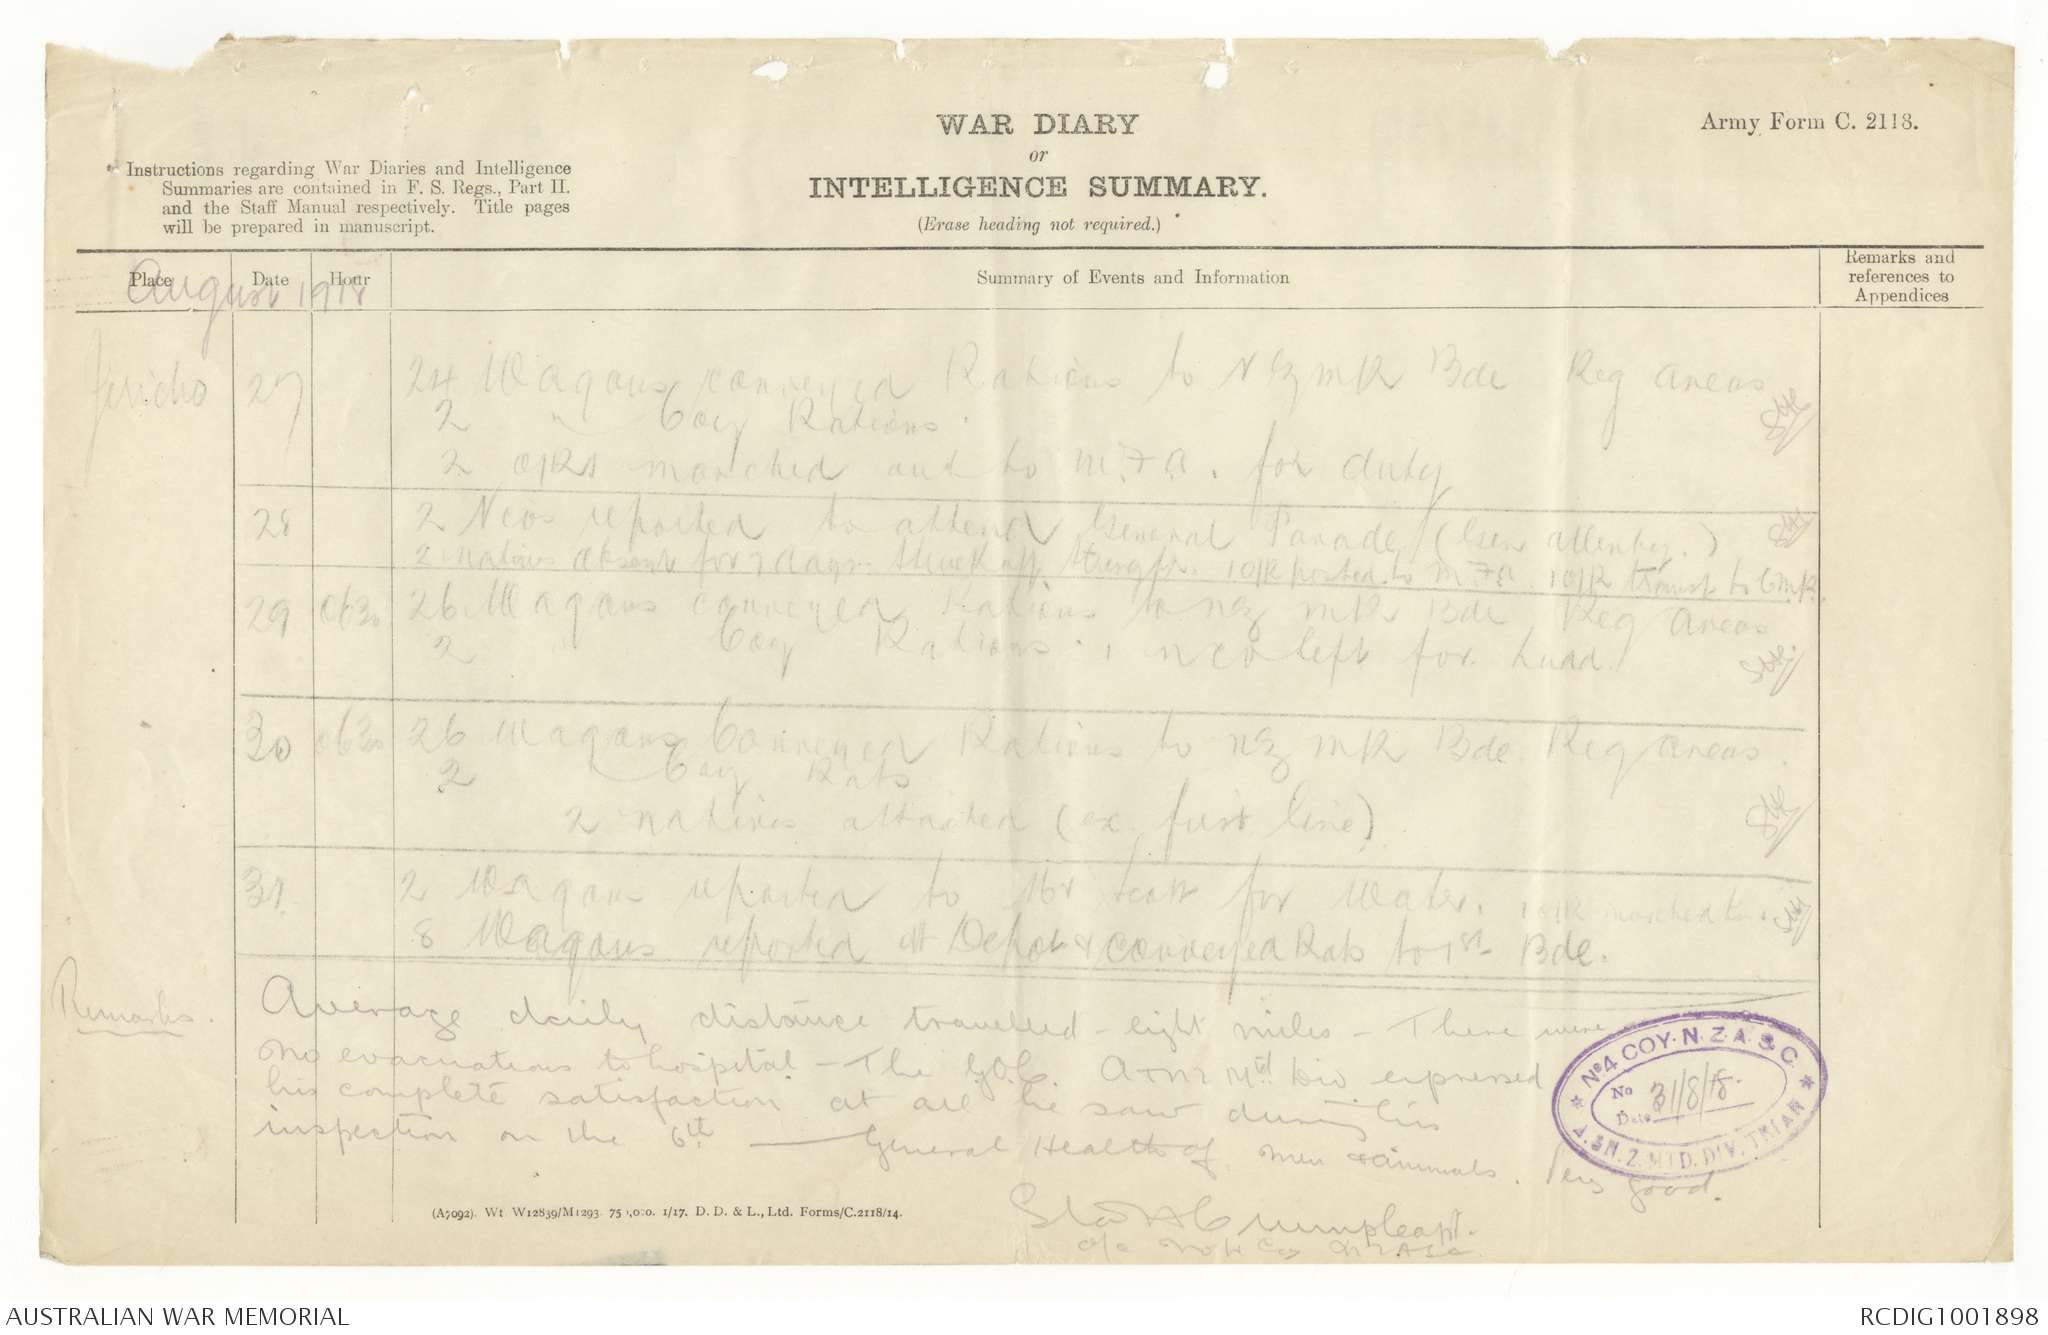 WAR DIARY
or
INTELLIGENCE SUMMARY.
(Erase heading not required.)
Army Form C. 2118.
Instructions regarding War Diaries and Intelligence
Summaries are contained in F. S. Regs., Part II.
and the Staff Manual respectively. Title pages
will be prepared in manuscript.
Place Date Hour Summary of Events and Information Remarks and references to Appendices
August 1918
Jericho 27 24 Wagons conveyed Rations to NZMR Bde Reg areas
2 " Coy Rations.
2 O/Rs marched out to M.F.A. for duty
28 2 Ncos reported to attend General Parade (Gen Allenby.)
2 natives absent for 7 days. Struck off strength. 1 O/R posted to M.F.A. 1 O/R transf to CMR.
29 0630 26 Wagons conveyed Rations to NZ MR Bde Reg Areas
2 " Coy Rations. 1 NCO left for Ludd.
30 0630 26 Wagons Conveyed Rations to NZ MR Bde Reg areas.
2 " Coy Rats
2 natives attached (ex. first line)
31. 2 Wagons reported to for Water. 1 O/R marched to
8 Wagons reported at Depot & conveyed Rats to 1st Bde.
Remarks. Average daily distance travelled - eight miles - There were
no evacuations to hospital - The G.O.C. A & NZ Mtd Div expressed
his complete satisfaction at all he saw during his
inspection on the 6th — General Health of men & animals. Very good.
Capt.
o/c No 4 Coy NZASC.
No 4 COY. N. Z. A. S. C.
No
Date 31/8/18.
A. & N. Z. MTD. DIV. TRAIN
(A7092). Wt W12839/M1293. 750,000. 1/17. D. D. & L., Ltd. Forms/C.2118/14.
AUSTRALIAN WAR MEMORIAL
RCDIG1001898